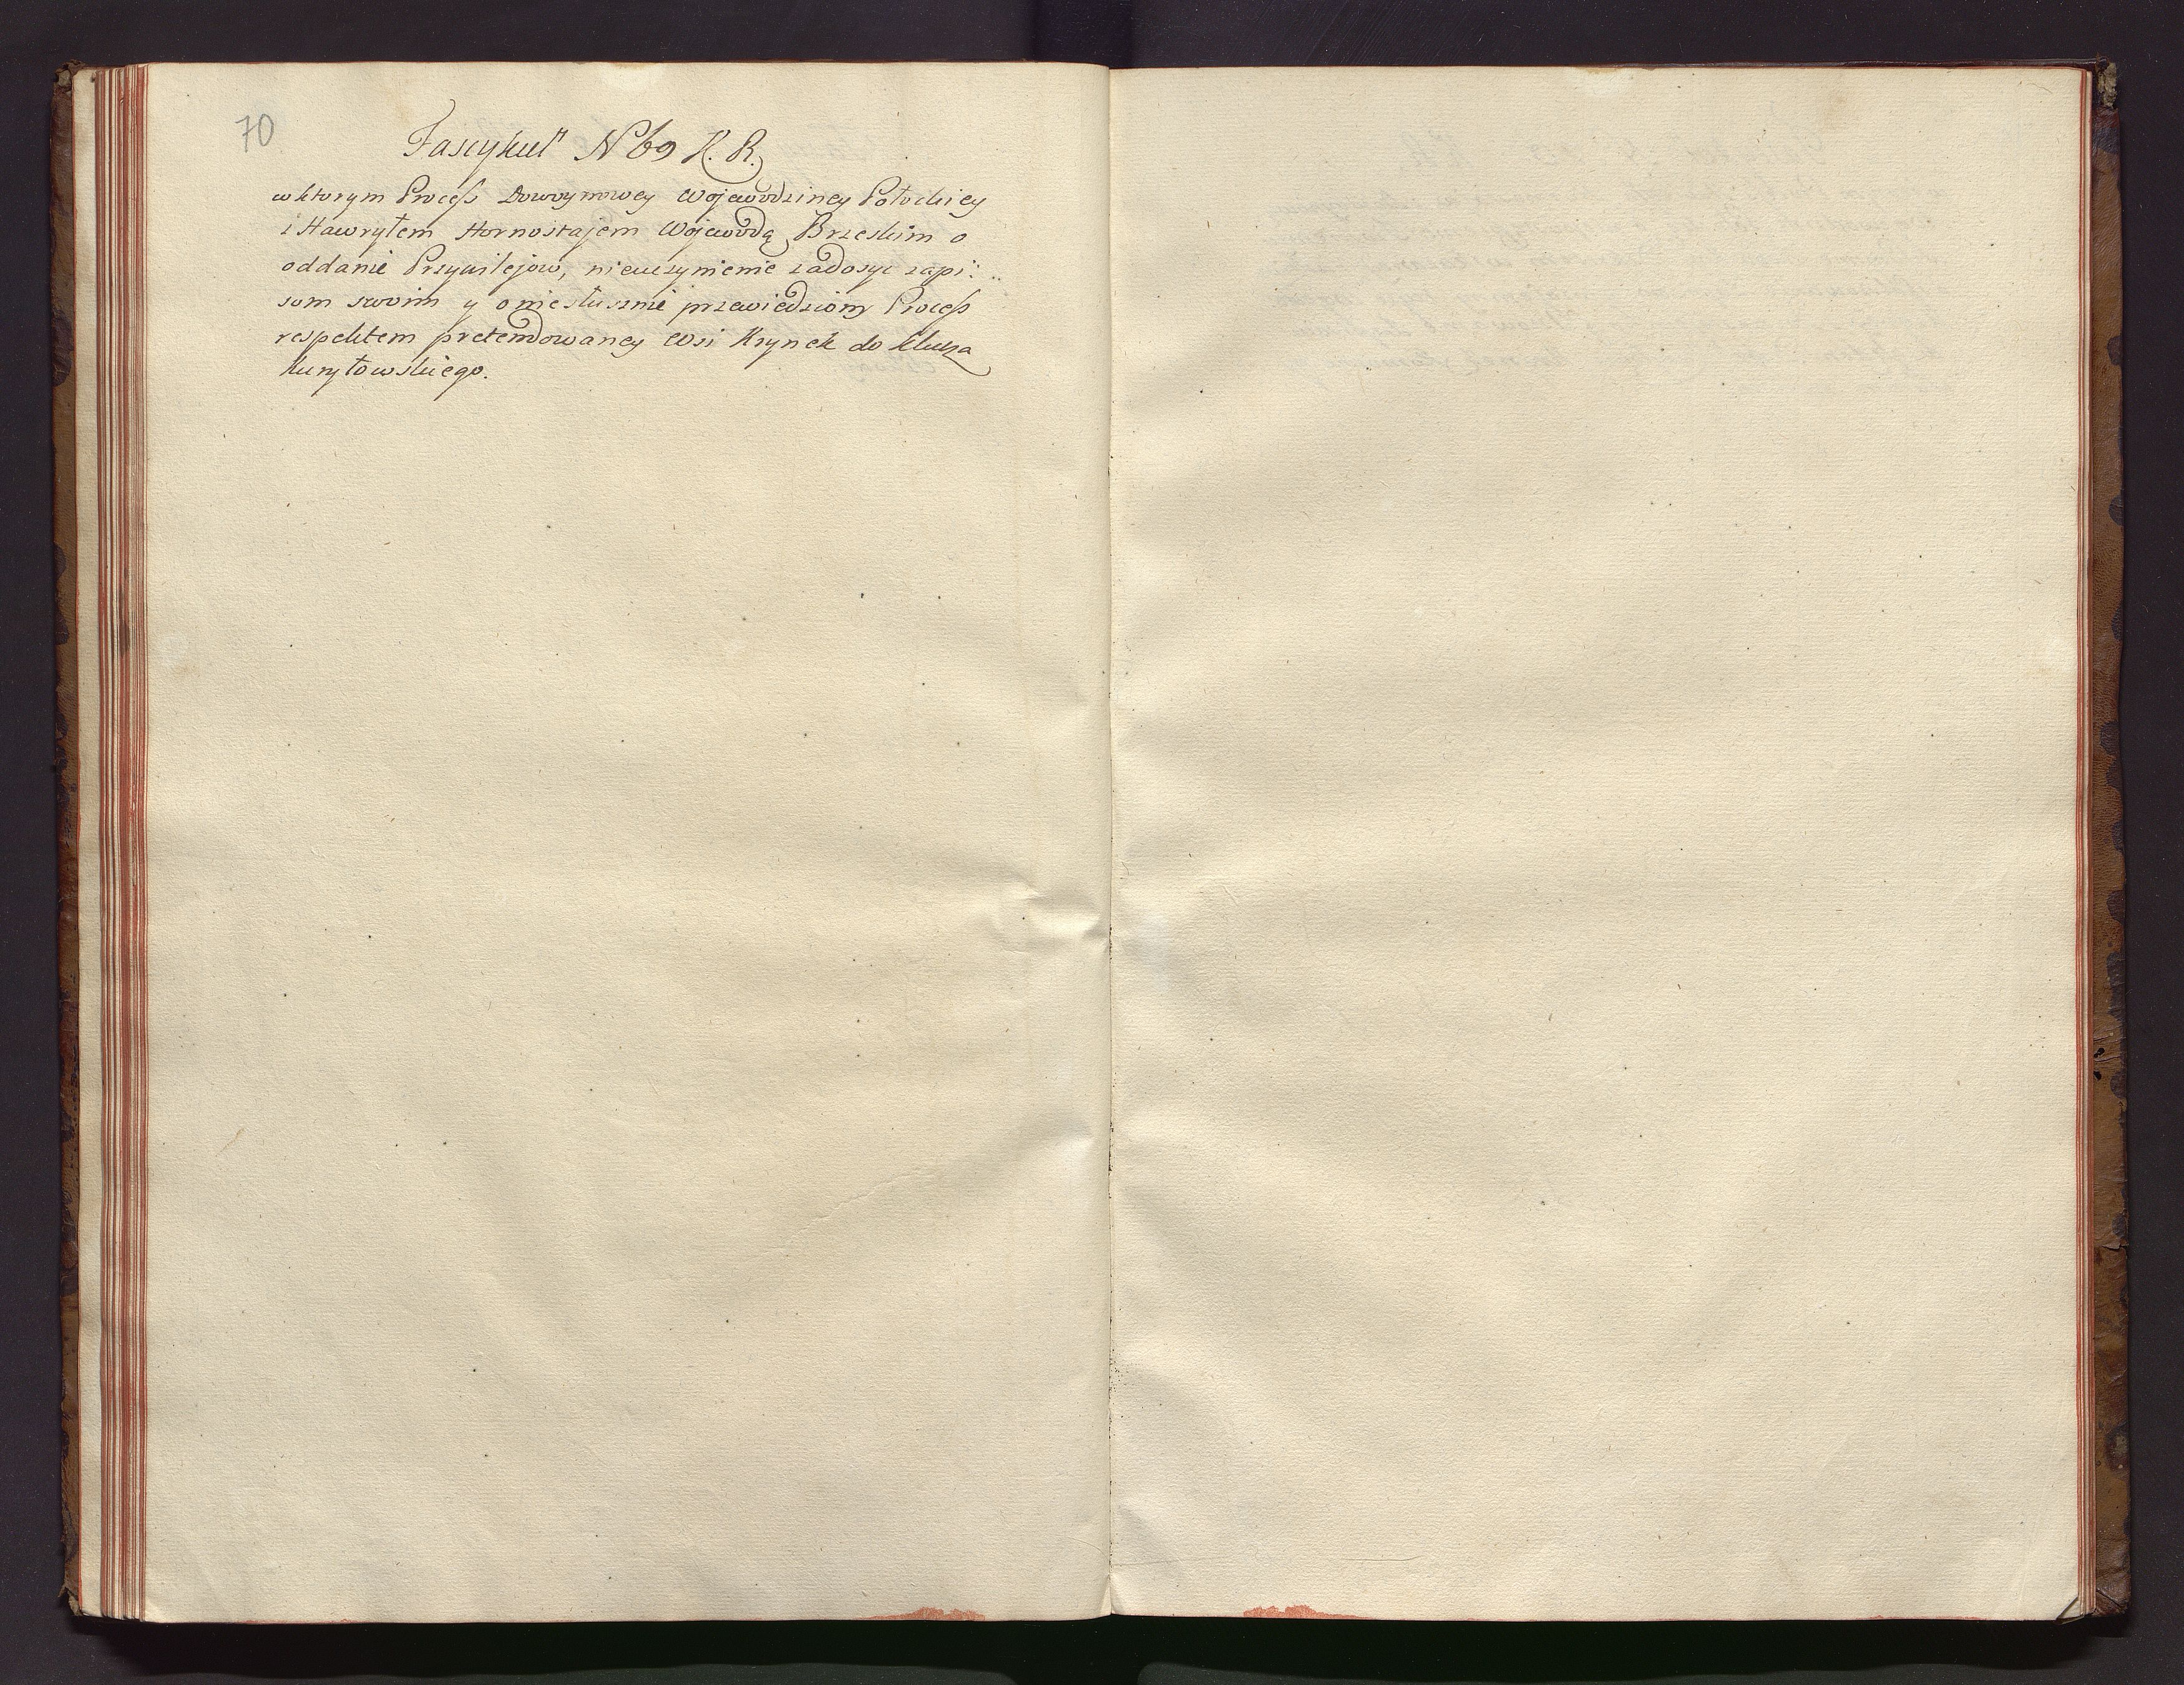 70
Fascykuł N 69 K. R.
w ktorym Process Dowoynowey Wojewodziney Połockiey
z Hawryłem Hornostajem Wojewodą Brzeskim o
oddanie Przywilejow, nieuczynienie zadosyc zapi:
som swoim y o niesłusznie przewiedziony Process
respektem pretendowaney Wsi Krynek do klucza
kuryłowskiego.